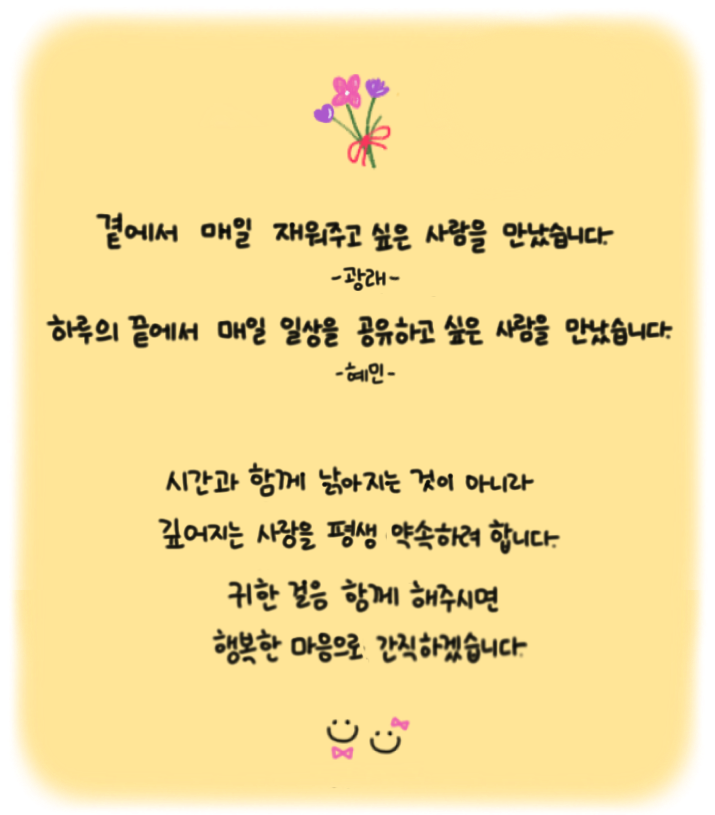 곁에서 매일 재워주고 싶은 사람을 만났습니다.
-광래-
하루의 끝에서 매일 일상을 공유하고 싶은 사람을 만났습니다.
-혜민-
시간과 함께 낡아지는 것이 아니라
깊어지는 사랑을 평생 약속하려 합니다.
귀한 걸음 함께 해주시면
행복한 마음으로 간직하겠습니다.